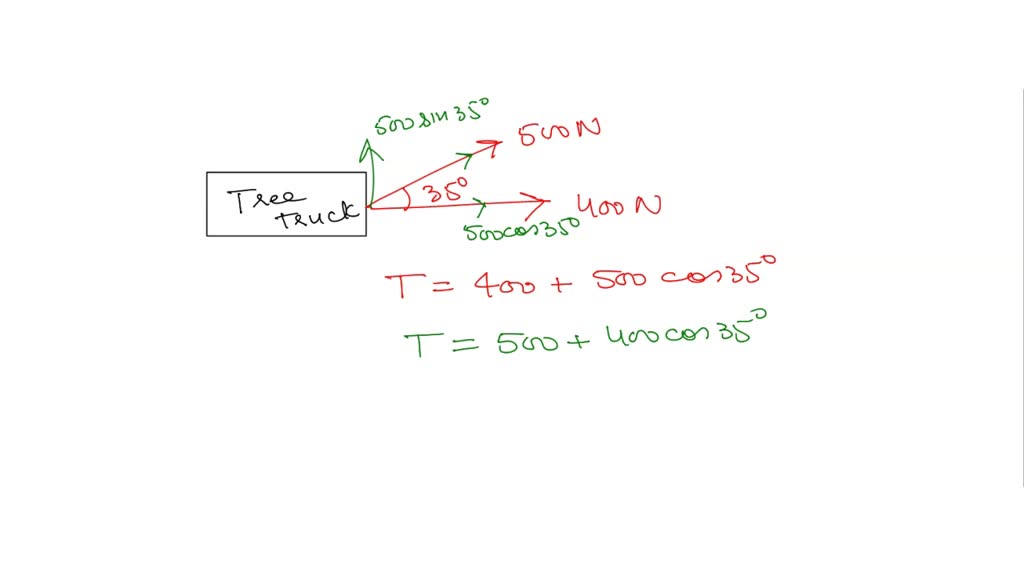 500 sin 35°
500 N
Tree
truck
35°
400 N
500 cos 35°
T = 400 + 500 cos 35°
T = 500 + 400 cos 35°